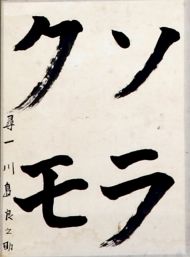 ソラ
クモ
尋一 川島良之助